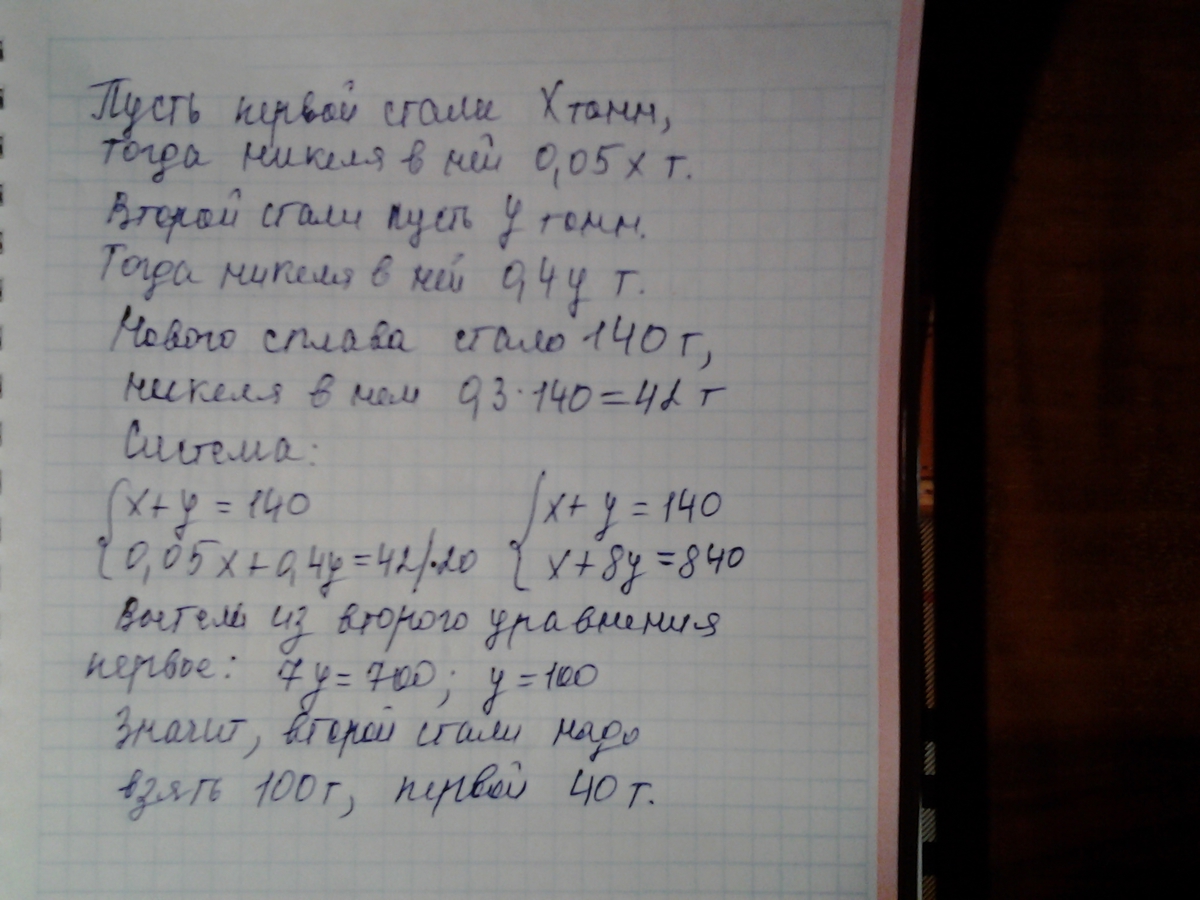 Пусть первой стали X тонн,
тогда никеля в ней 0,05 x т.
Второй стали пусть y тонн.
Тогда никеля в ней 0,4y т.
Нового сплава стало 140 т,
никеля в нем 0,3·140=42 т
Система:
{x+y=140 {x+y=140
0,05x+0,4y=42/·20 x+8y=840
Вычтем из второго уравнения
первое: 7y=700; y=100
Значит, второй стали надо
взять 100т, первой 40 т.